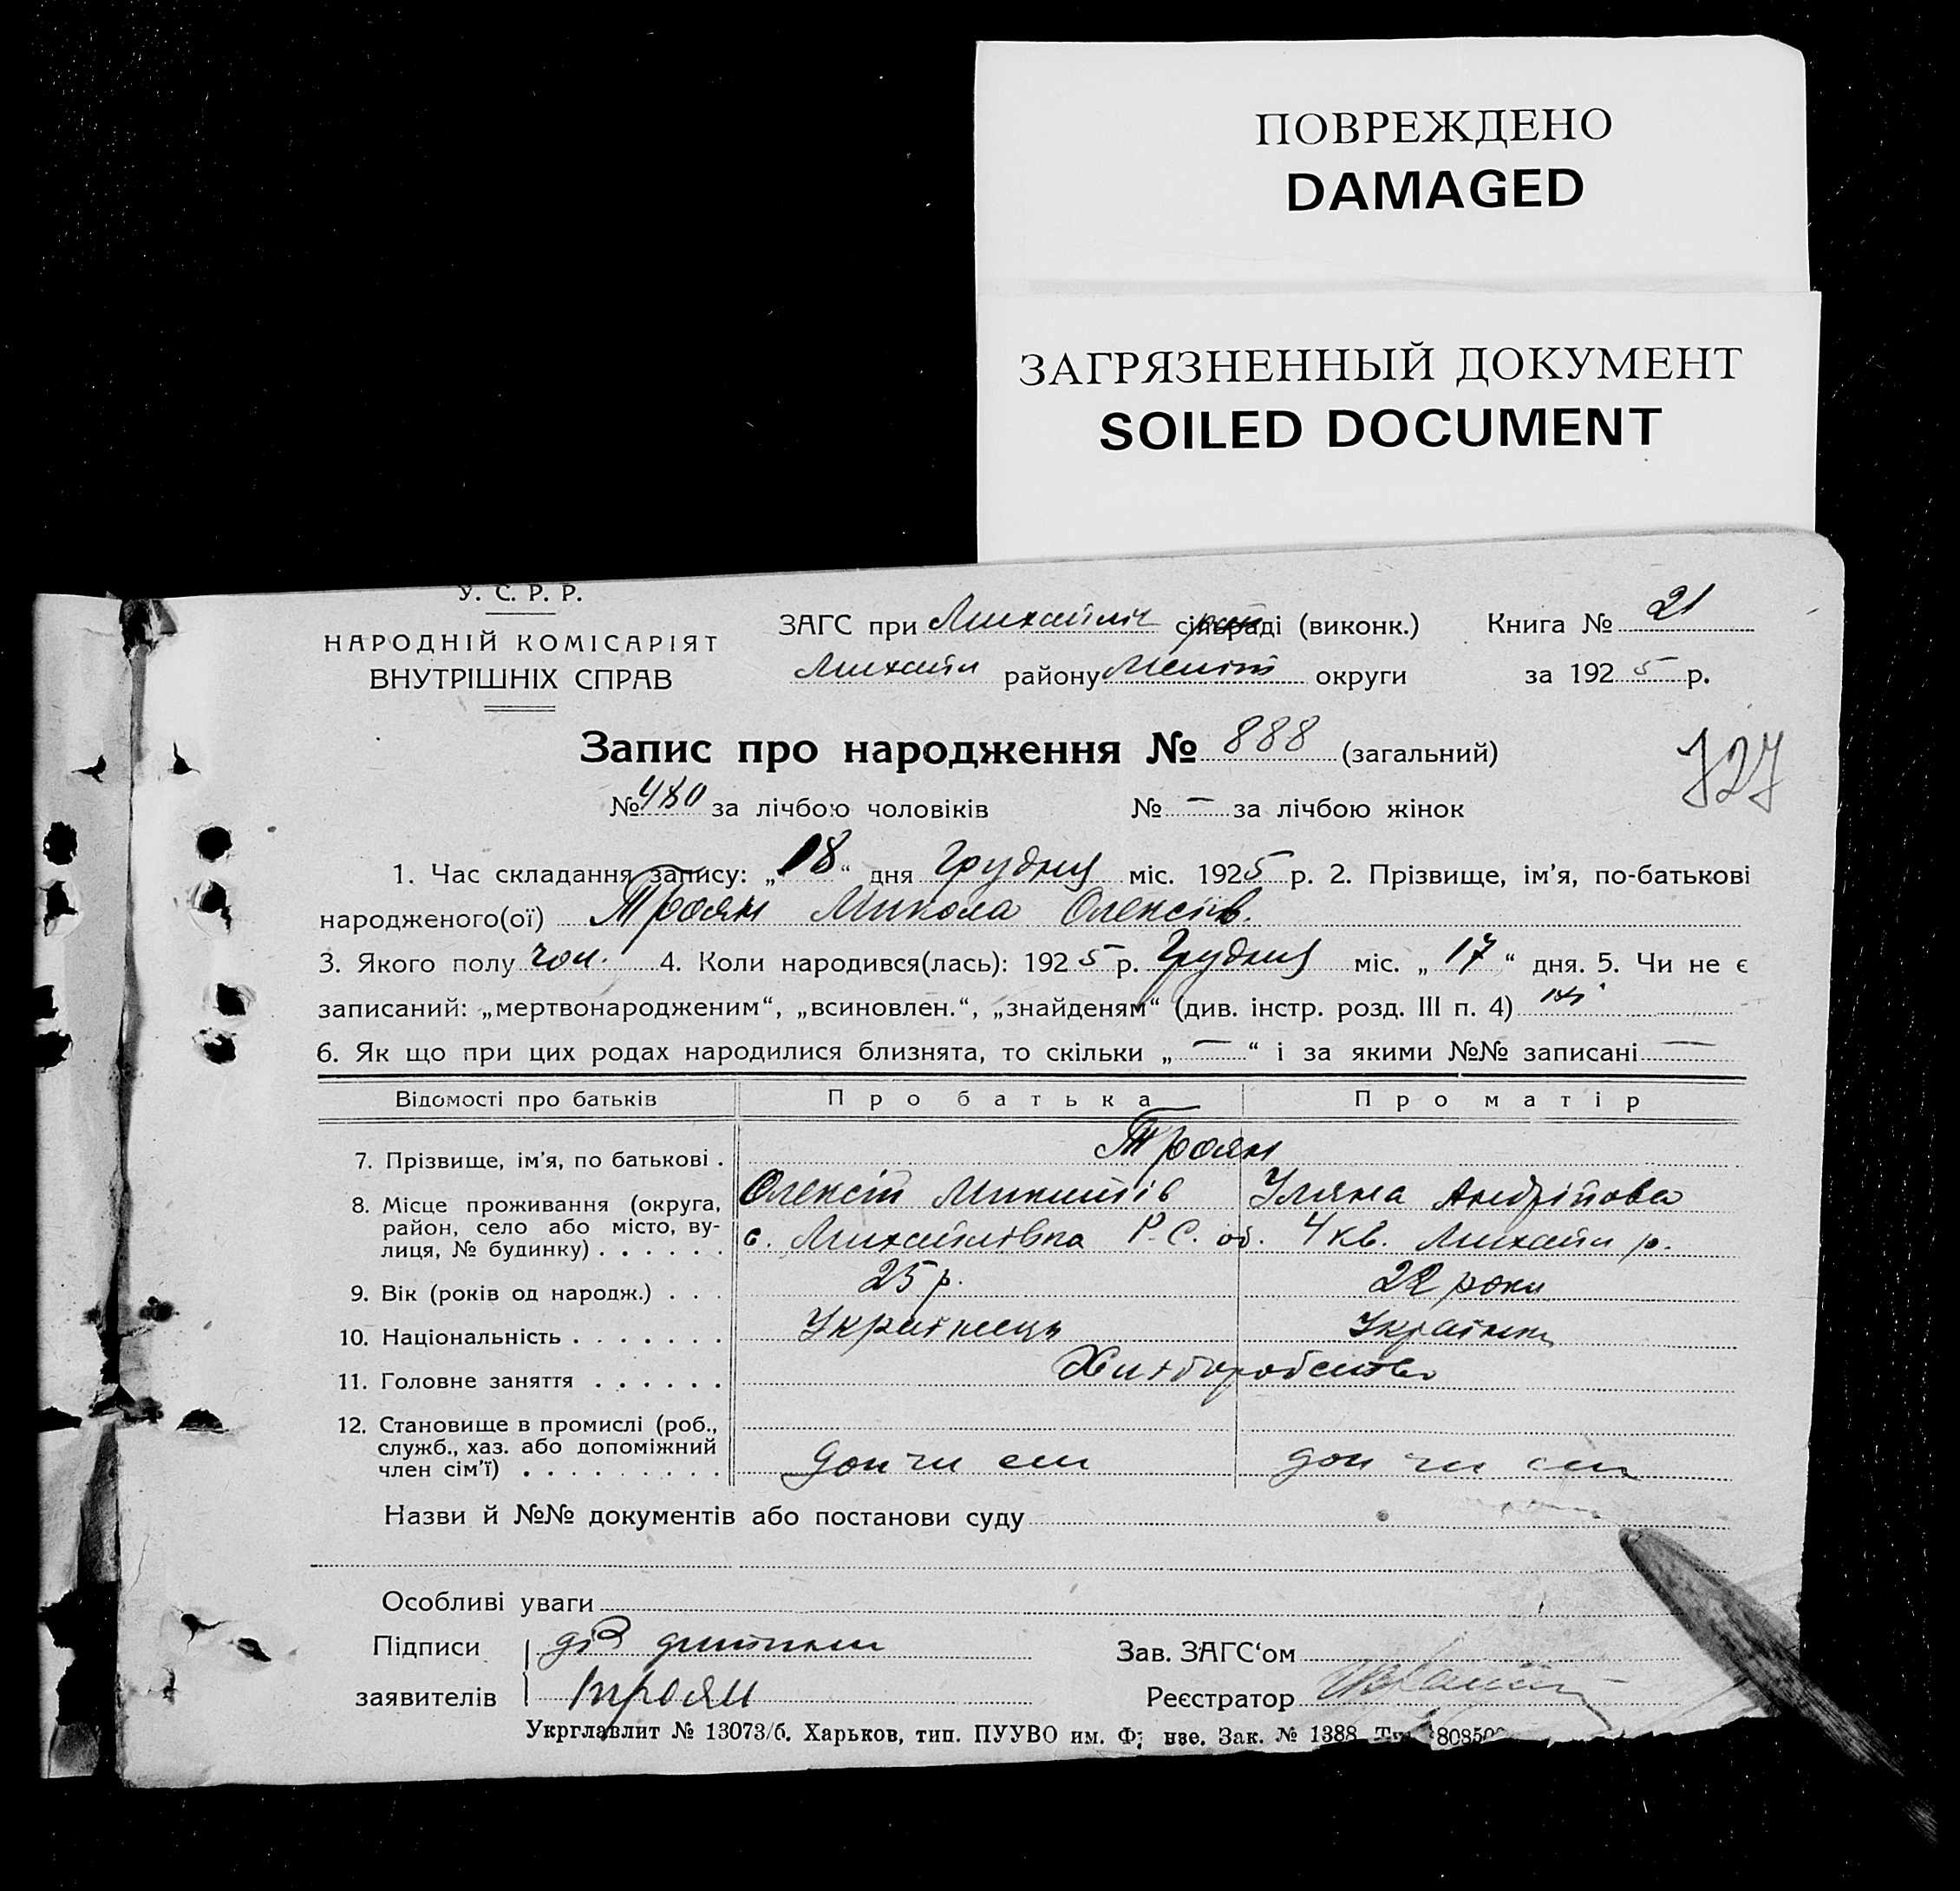 ПОВРЕЖДЕНО
DAMAGED
ЗАГРЯЗНЕННЫЙ ДОКУМЕНТ
SOILED DOCUMENT
У. С. Р. Р.
НАРОДНІЙ КОМІСАРІЯТ
ВНУТРІШНІХ СПРАВ
ЗАГС при Михайліч сільраді (виконк.)
Михайл району Меліт округи
Книга № 21
за 1925 р.
Запис про народження № 888 (загальний)
727
№ 480 за лічбою чоловіків № — за лічбою жінок
1. Час складання запису: „18“ дня Грудня міс. 1925 р. 2. Прізвище, ім’я, по-батькові
народженого(ої) Троян Микола Олексіїв.
3. Якого полу чол. 4. Коли народився(лась): 1925 р. Грудня міс. „17“ дня. 5. Чи не є
записаний: „мертвонародженим“, „всиновлен.“, „знайденям“ (див. інстр. розд. III п. 4) ні
6. Як що при цих родах народилися близнята, то скільки „—“ і за якими №№ записані —
Відомості про батьків Про батька Про матір
7. Прізвище, ім’я, по батькові . Троян
Олексій Микитів Уляна Андрійова
8. Місце проживання (округа,
район, село або місто, ву-
лиця, № будинку) . . . . . .
с. Михайлівка Р.С. об. 4 кв. Михайл р.
9. Вік (років од народж.) . . . 25 р. 22 роки
10. Національність . . . . . . . Українець Українка
11. Головне заняття . . . . . . Хліборобство
12. Становище в промислі (роб.,
служб., хаз. або допоміжний
член сім’ї) . . . . . . . . .
доп чл сім доп чл сім
Назви й №№ документів або постанови суду
Особливі уваги
Підписи дід дитини
заявителів Троян
Зав. ЗАГС‘ом
Реєстратор
Укрглавлит № 13073/б. Харьков, тип. ПУУВО им. Ф нзе. Зак. № 1388 80850